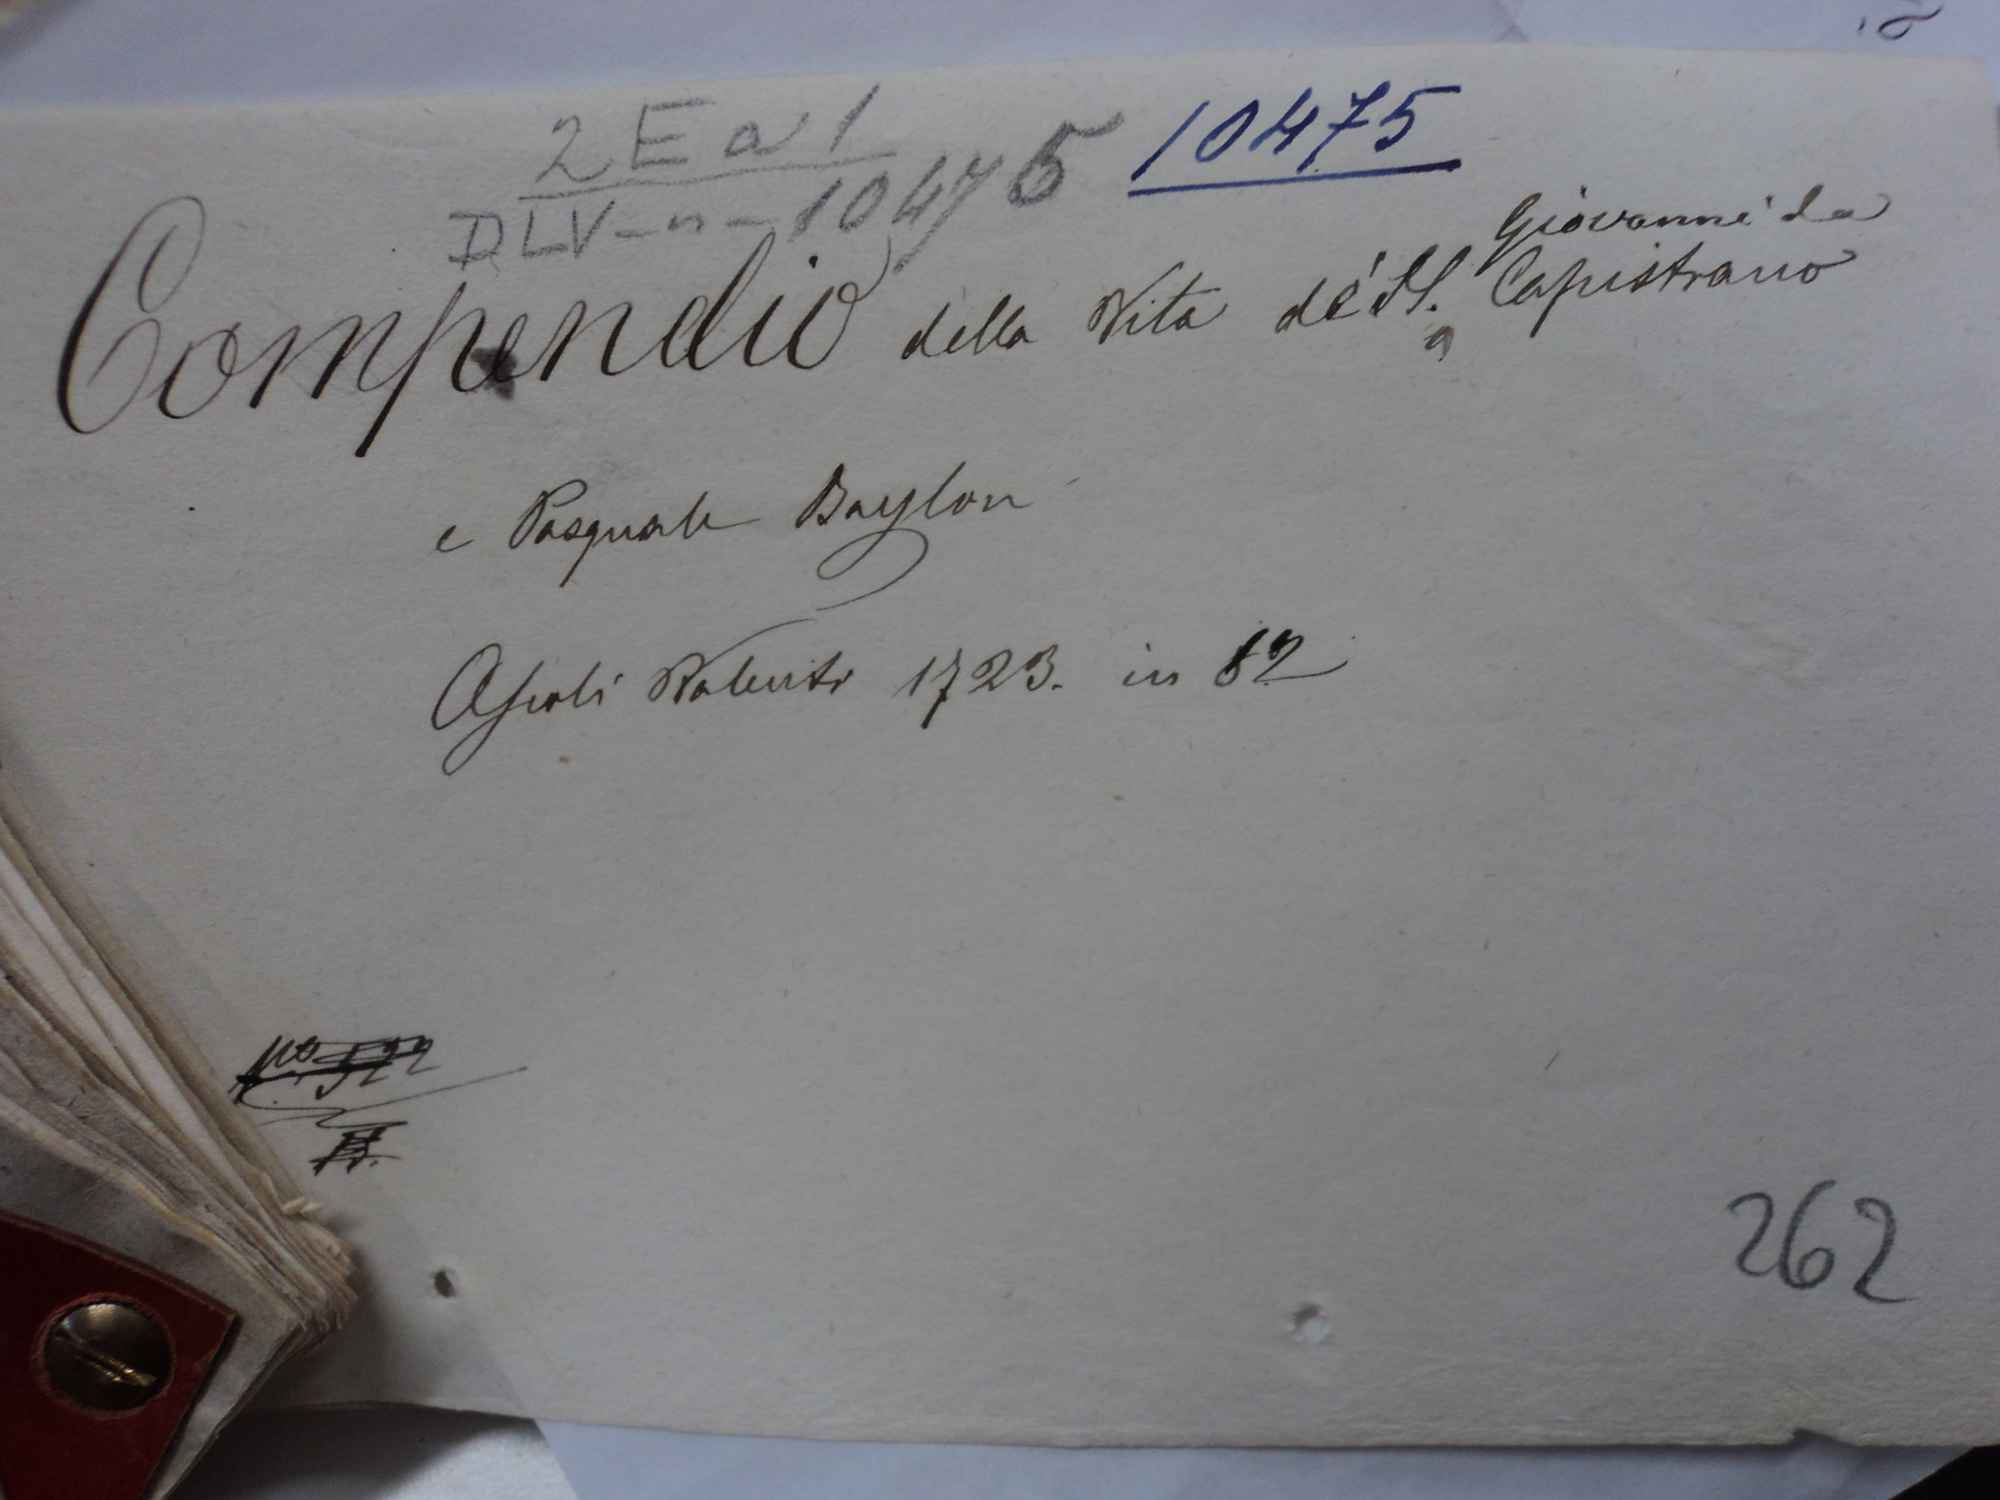 2 E a 1
DLV-n-10475 10475
Compendio della Vita de' SS. Giovanni da
Capistrano
e Pasquale Baylon
Ascoli Valenti 1723. in 12
No 522
262